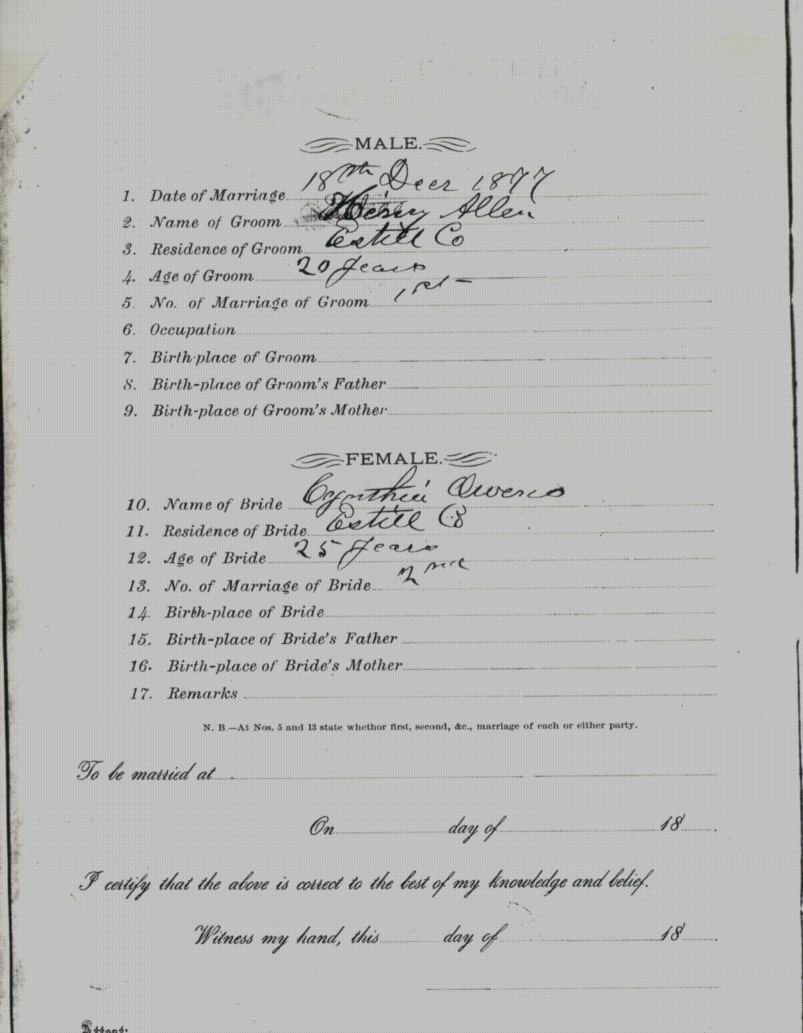 MALE.
1. Date of Marriage 18th Decr 1897
2. Name of Groom Henry Allen
3. Residence of Groom Estill Co
4. Age of Groom 20 years
5. No. of Marriage of Groom 1st –
6. Occupation
7. Birth-place of Groom
8. Birth-place of Groom's Father
9. Birth-place of Groom's Mother
FEMALE.
10. Name of Bride Cynthia Owens
11. Residence of Bride Estill Co
12. Age of Bride 25 years
13. No. of Marriage of Bride 2nd
14. Birth-place of Bride
15. Birth-place of Bride's Father
16. Birth-place of Bride's Mother
17. Remarks
N. B.—At Nos. 5 and 13 state whethor first, second, &c., marriage of each or either party.
To be married at
On day of 18
I certify that the above is correct to the best of my knowledge and belief.
Witness my hand, this day of 18
Attest: